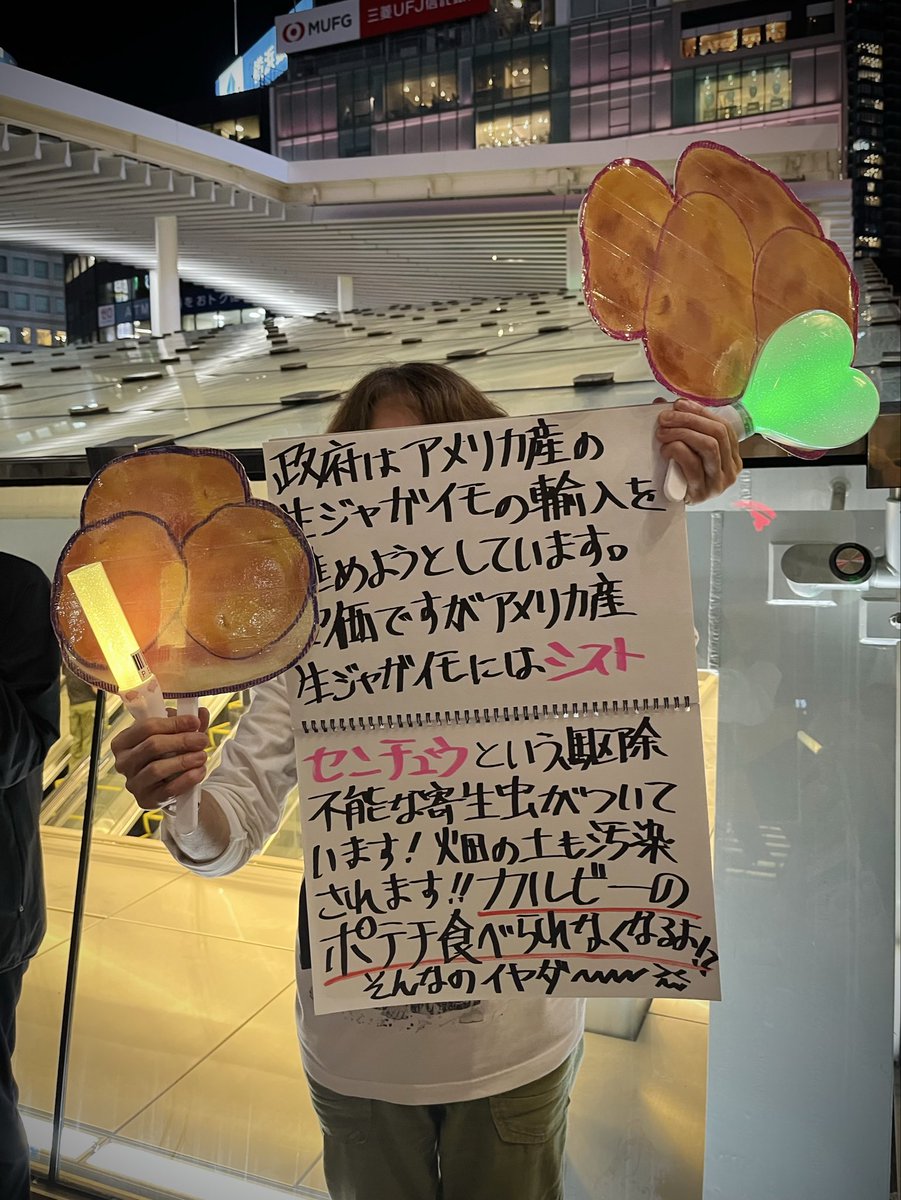 MUFG
三菱UFJ信託銀行
横浜
ATM
をおトク
政府はアメリカ産の
生ジャガイモの輸入を
進めようとしています。
安価ですがアメリカ産
生ジャガイモにはシスト
センチュウという駆除
不能な寄生虫がついて
います！畑の土も汚染
されます!!カルビーの
ポテチ食べられなくなるよ!?
そんなのイヤダ〜〜〜